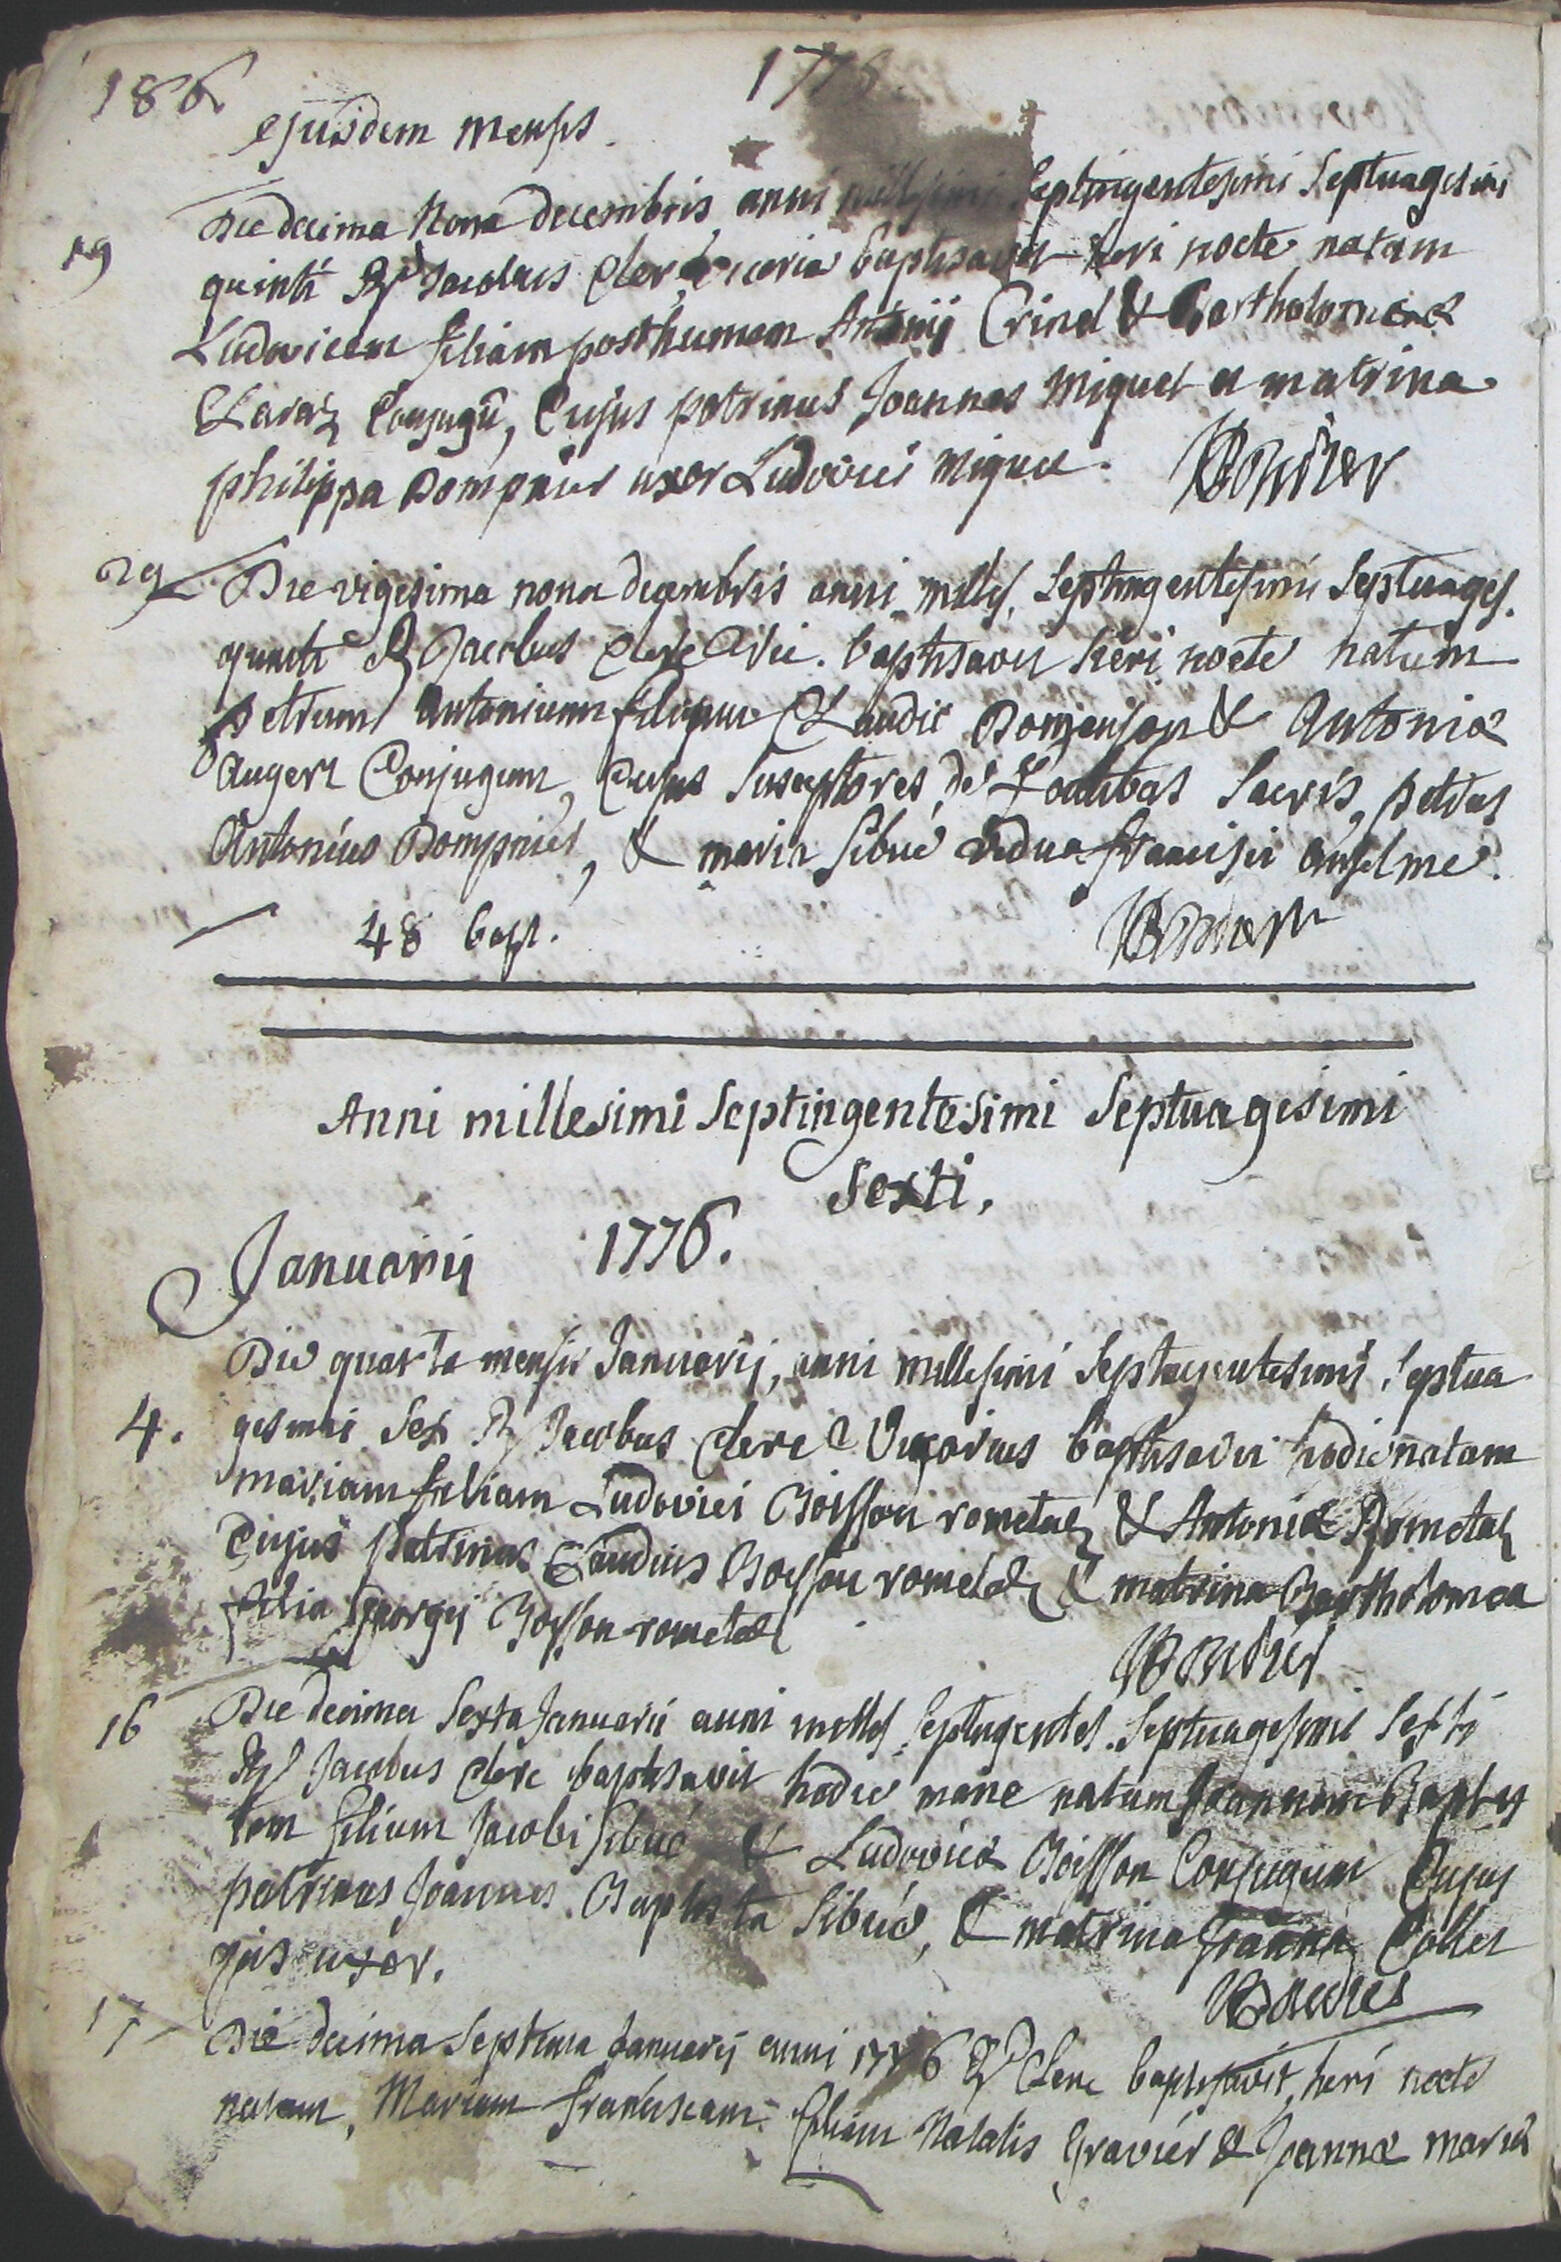 186 177
ejusdem mensis.
19 Die decima Nona decembris anni millesimi Septingentesimi Septuagesimi
quinti Rd Jacobus Clerc baptisavit heri nocte natam
Ludovicam filiam posthumam Antonij Crinel & Bartholomeæ
Claraz Conjugū, Cujus patrinus Joannes Miquet et matrina
philippa Dompnier uxor Ludovici Miquet.
29 Die vigesima nona decembris anni milles. Septingentesimi Septuages.
quinti Rd Jacobus Clerc Vic. baptisavit heri nocte natum
petrum Antonium filium Claudii Domenjon & Antoniæ
Augert Conjugum, Cujus Susceptores de Fontibus Sacris, petrus
Antonius Dompnier, & maria Sibué vidua francisci anselme.
48 bapt.
Anni millesimi Septingentesimi Septuagesimi
Sexti.
Januarij 1776.
Die quarta mensis Januarij, anni millesimi Septingentesimi, Septua
4. gesimi Sex Rd Jacobus Clerc Vicarius baptisavit hodie natam
mariam filiam Ludovici Boisson rometaz & Antoniæ Rometaz
Cujus patrinus Claudius Boisson rometaz & matrina Bartholomea
filia Georgij Boisson rometaz
16 Die decima Sexta Januarii anni milles. Septingentes. Septuagesimi Sexti
Rd Jacobus Clerc baptisavit hodie mane natum Joannem Baptis
tam filium Jacobi Sibué & Ludovicæ Boisson Conjugum Cujus
patrinus Joannes Baptista Sibué, & matrina Joanna Collet
ejus uxor.
17 Die decima Septima Januarij anni 1776 Rd Clerc baptisavit, heri nocte
natam, Mariam franciscam filiam Natalis Gravier & Joannæ mariæ